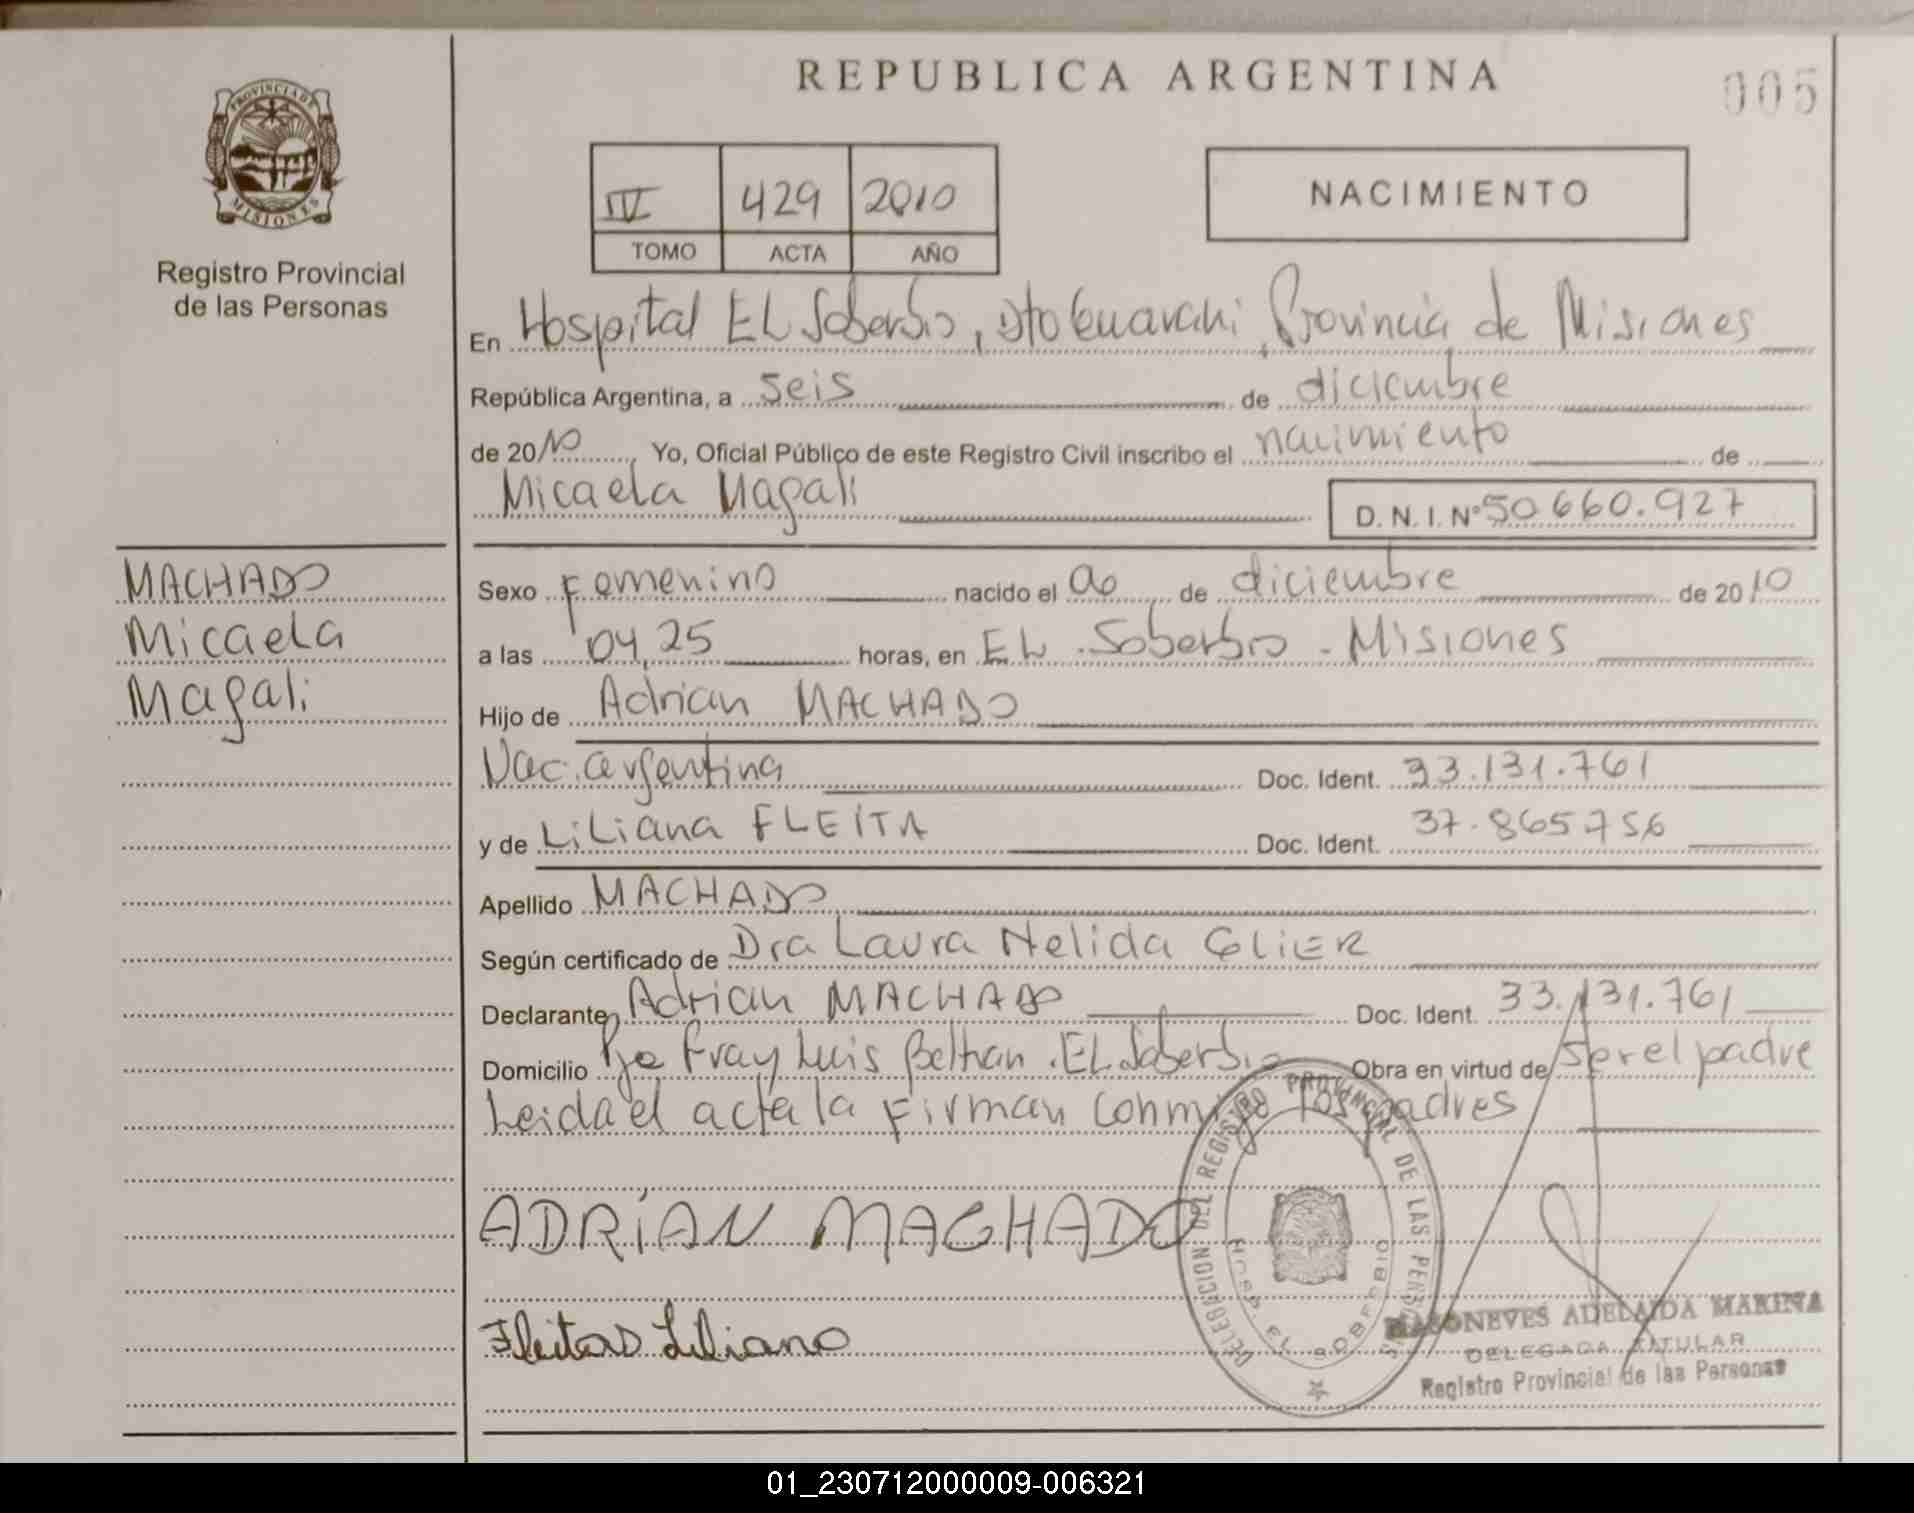 REPUBLICA ARGENTINA
005
PROVINCIA DE
MISIONES
Registro Provincial
de las Personas
IV 429 2010
TOMO ACTA AÑO
NACIMIENTO
En Hospital EL Soberbio, Dto Guarani, Provincia de Misiones
República Argentina, a seis de diciembre
de 2010 Yo, Oficial Público de este Registro Civil inscribo el nacimiento de
Micaela Magali
D. N. I. Nº 50.660.927
MACHADO
Micaela
Magali
Sexo Femenino nacido el 06 de diciembre de 2010
a las 04,25 horas, en EL Soberbio - Misiones
Hijo de Adrian MACHADO
Nac. argentina Doc. Ident. 33.131.761
y de Liliana FLEITA Doc. Ident. 37.865756
Apellido MACHADO
Según certificado de Dra Laura Nelida GLIER
Declarante Adrian MACHADO Doc. Ident. 33.131.761
Domicilio Fray Luis Beltran. EL Soberbio Obra en virtud de ser el padre
Leida el acta la Firman conmigo los padres
ADRÍAN MACHADO
Fleitas Liliana
DELEGACION DEL REGISTRO PROVINCIAL DE LAS PERSONAS
HOSP. EL SOBERBIO
ADELAIDA MARINA
DELEGADA TITULAR
Registro Provincial de las Personas
01_230712000009-006321